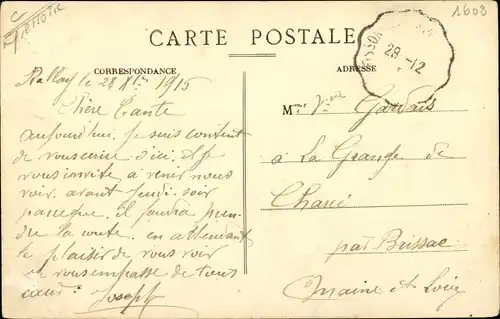 1608
CARTE POSTALE
CORRESPONDANCE
ADRESSE
28-12
le 28 Xbre 1915
Chère Tante
aujourd'hui je suis content
de vous écrire d'ici et je
vous invite à venir nous
voir avant jeudi soir
parceque il faudra
la route en attendant
le plaisir de vous voir
je vous embrasse de tous
cœur : Joseph
Mme Vve Gervais
à La Grange de
par Brissac
Maine et Loire